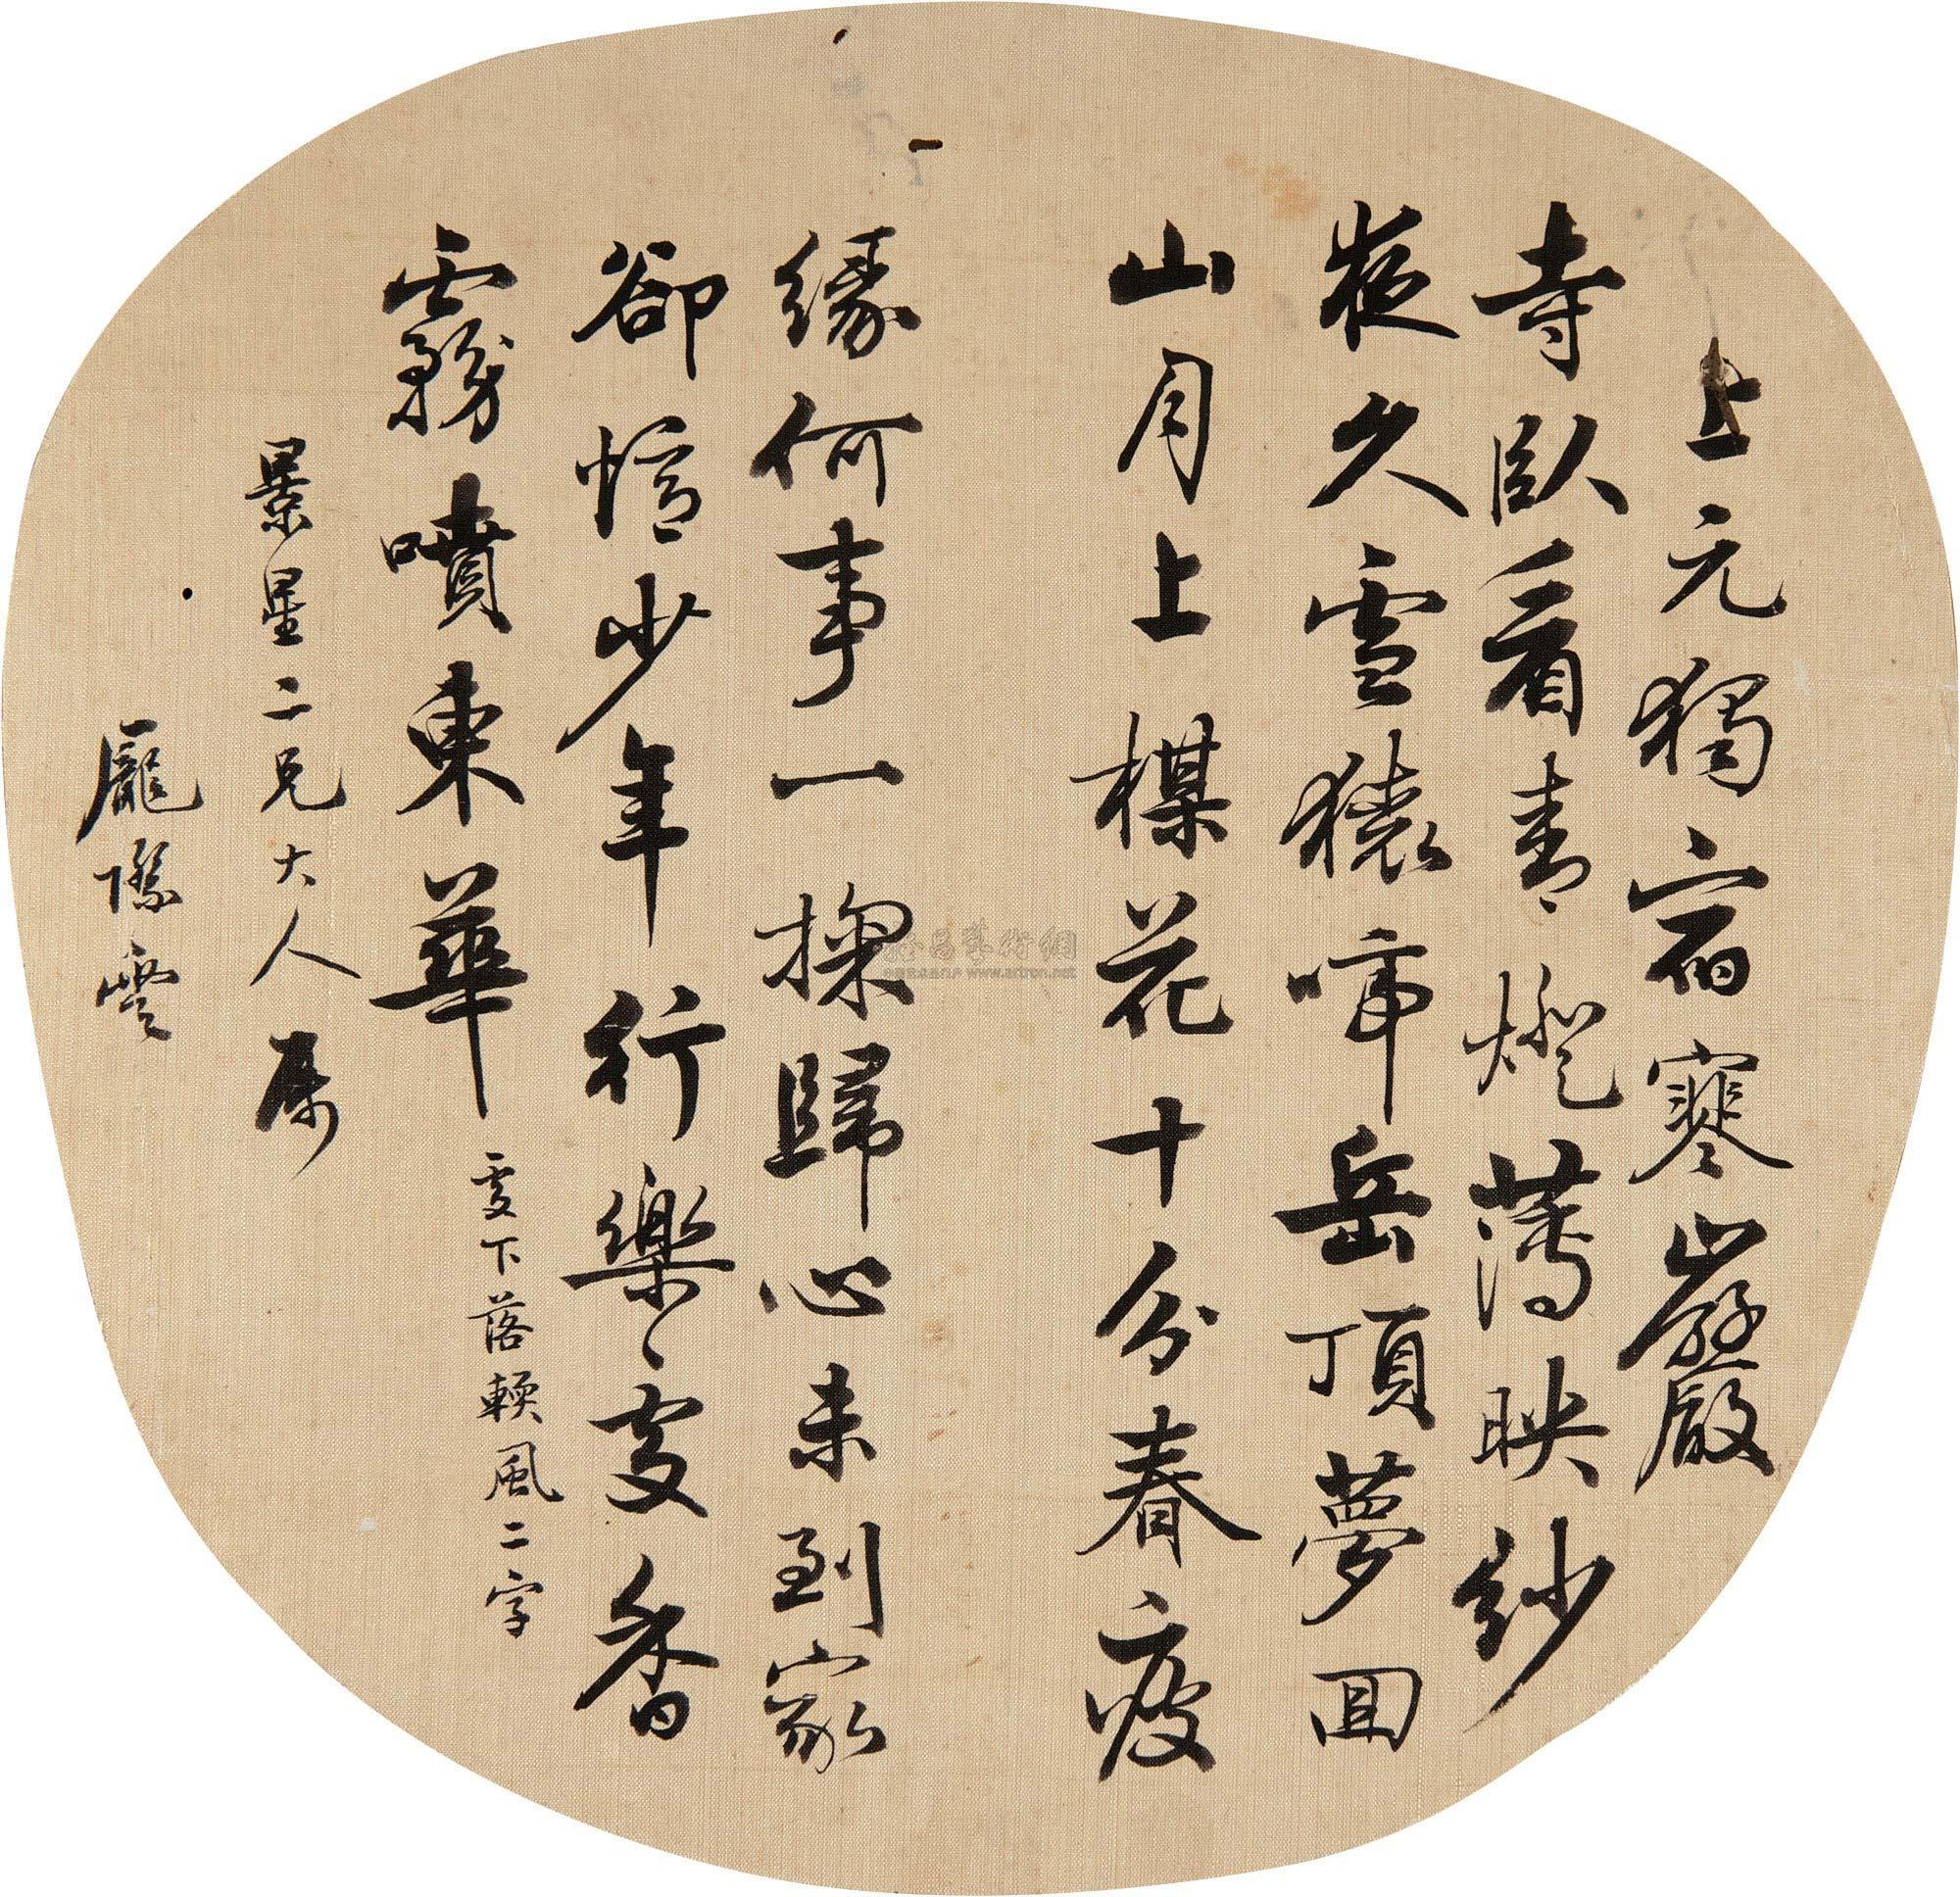 上元獨宿寒巖
寺臥看青燈薄映紗
夜久雪猿啼岳頂夢回
山月上楳花十分春瘦
緣何事一掬歸心未到家
卻憶少年行樂處香
霧噴東華
處下落輭風二字
景星二兄大人屬
龐際雲
www.artron.net